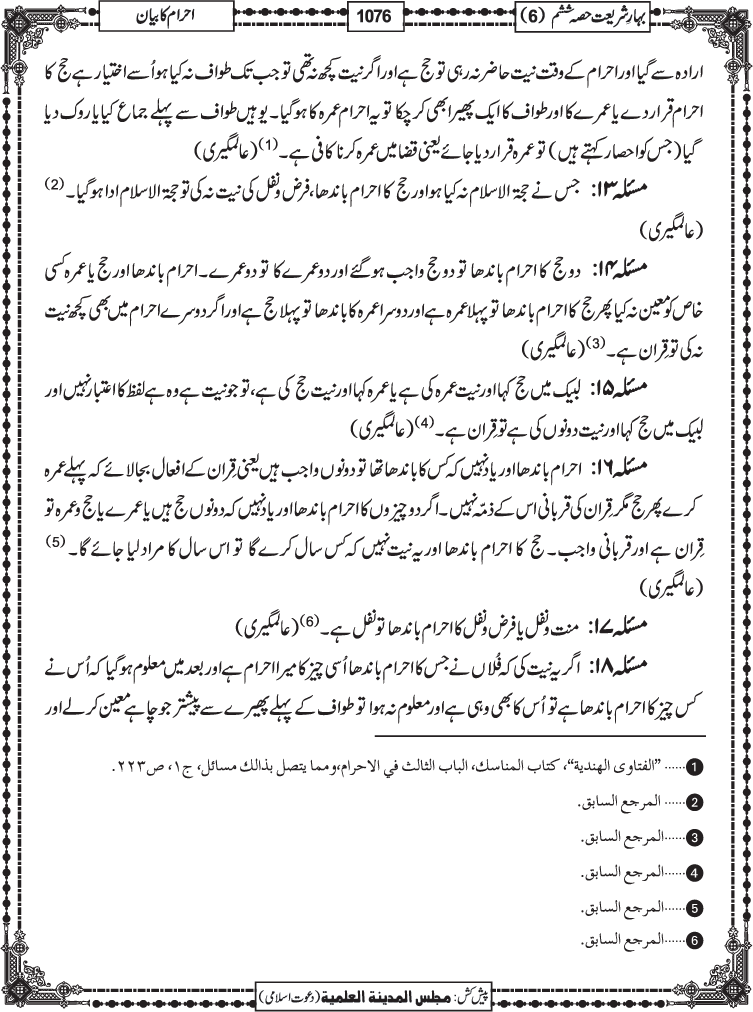 بہار شریعت حصہ ششم (6)
1076
احرام کا بیان
ارادہ سے گیا اور احرام کے وقت نیت حاضر نہ رہی تو حج ہے اور اگر نیت کچھ نہ تھی تو جب تک طواف نہ کیا ہو اُسے اختیار ہے حج کا
احرام قرار دے یا عمرے کا اور طواف کا ایک پھیرا بھی کر چکا تو یہ احرام عمرہ کا ہوگیا۔ یوہیں طواف سے پہلے جماع کیا یا روک دیا
گیا (جس کو احصار کہتے ہیں) تو عمرہ قرار دیا جائے یعنی قضا میں عمرہ کرنا کافی ہے۔ (1) (عالمگیری)
مسئلہ ۱۳: جس نے حجۃ الاسلام نہ کیا ہو اور حج کا احرام باندھا، فرض و نفل کی نیت نہ کی تو حجۃ الاسلام ادا ہوگیا۔ (2)
(عالمگیری)
مسئلہ ۱۴: دو حج کا احرام باندھا تو دو حج واجب ہوگئے اور دو عمرے کا تو دو عمرے۔ احرام باندھا اور حج یا عمرہ کسی
خاص کو معین نہ کیا پھر حج کا احرام باندھا تو پہلا عمرہ ہے اور دوسرا عمرہ کا باندھا تو پہلا حج ہے اور اگر دوسرے احرام میں بھی کچھ نیت
نہ کی تو قِران ہے۔ (3) (عالمگیری)
مسئلہ ۱۵: لبیک میں حج کہا اور نیت عمرہ کی ہے یا عمرہ کہا اور نیت حج کی ہے، تو جو نیت ہے وہ ہے لفظ کا اعتبار نہیں اور
لبیک میں حج کہا اور نیت دونوں کی ہے تو قِران ہے۔ (4) (عالمگیری)
مسئلہ ۱۶: احرام باندھا اور یاد نہیں کہ کس کا باندھا تھا تو دونوں واجب ہیں یعنی قِران کے افعال بجا لائے کہ پہلے عمرہ
کرے پھر حج مگر قِران کی قربانی اس کے ذمّہ نہیں۔ اگر دو چیزوں کا احرام باندھا اور یاد نہیں کہ دونوں حج ہیں یا عمرے یا حج و عمرہ تو
قِران ہے اور قربانی واجب۔ حج کا احرام باندھا اور یہ نیت نہیں کہ کس سال کرے گا تو اس سال کا مراد لیا جائے گا۔ (5)
(عالمگیری)
مسئلہ ۱۷: منت و نفل یا فرض و نفل کا احرام باندھا تو نفل ہے۔ (6) (عالمگیری)
مسئلہ ۱۸: اگر یہ نیت کی کہ فُلاں نے جس کا احرام باندھا اُسی چیز کا میرا احرام ہے اور بعد میں معلوم ہوگیا کہ اُس نے
کس چیز کا احرام باندھا ہے تو اُس کا بھی وہی ہے اور معلوم نہ ہوا تو طواف کے پہلے پھیرے سے پیشتر جو چاہے معین کرلے اور
1 ...... "الفتاوی الھندیة"، کتاب المناسك، الباب الثالث في الاحرام، ومما یتصل بذالك مسائل، ج۱، ص۲۲۳.
2 ...... المرجع السابق.
3 ...... المرجع السابق.
4 ...... المرجع السابق.
5 ...... المرجع السابق.
6 ...... المرجع السابق.
پیش کش: مجلس المدینة العلمیة (دعوت اسلامی)